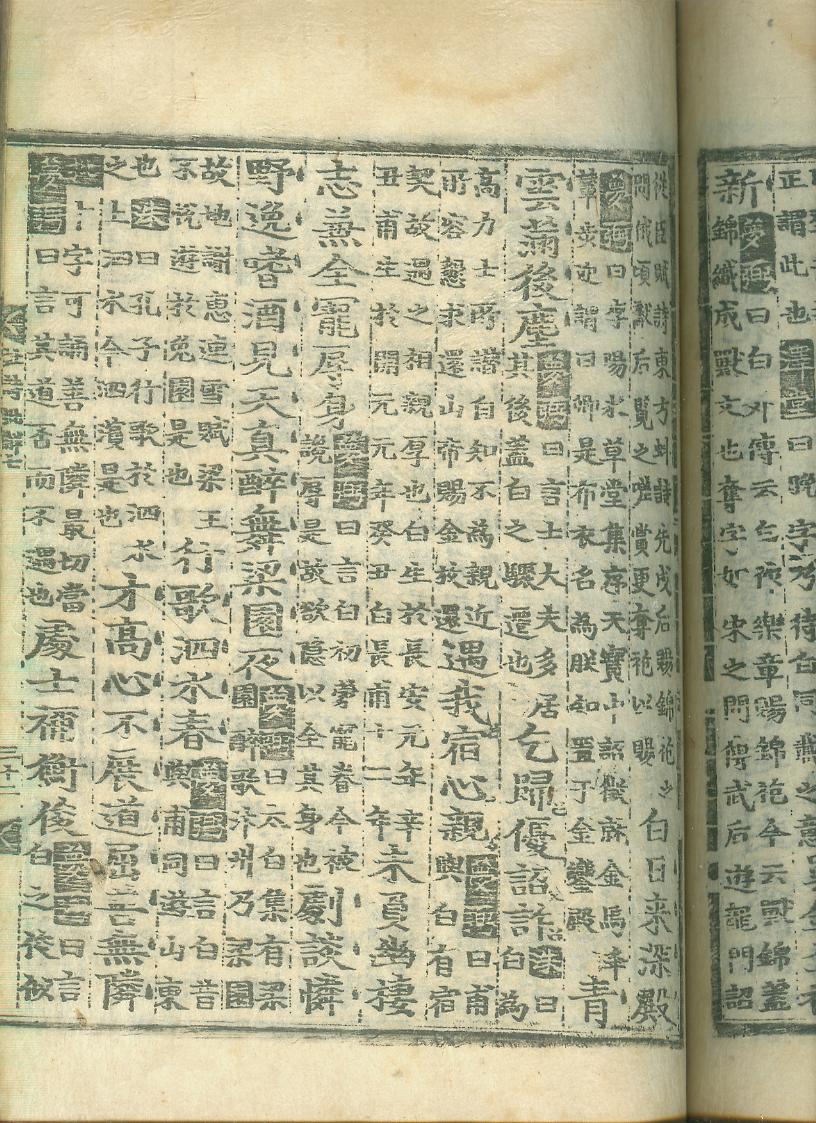 正謂此也澤堂曰晚字乃待白同載之意
新夢弼曰白外傳云乞夜樂章賜錦袍今云獸錦蓋
錦織成獸文也奪字如宋之問傳武后遊龍門詔
從臣賦詩東方虯詩先成后賜錦袍之
問俄頃獻后覽之嗟賞更奪袍以賜白日来深殿
夢弼曰李陽氷草堂集序天寶中詔徵就金馬奉
輦步迎謂曰卿是布衣名為朕知置于金鑾殿青
雲滿後塵夢弼曰言士大夫多居
其後蓋白之驟遷也乞歸優詔許洙曰
白為
高力士所譖自知不為親近
所容懇求還山帝賜金放還遇我宿心親夢弼曰甫
與白有宿
契故遇之相親厚也白生於長安元年辛
丑甫生於開元元年癸丑白長甫十二年未負幽棲
志兼全寵辱身夢弼曰言白初蒙寵眷今被
讒辱是故欲隱以全其身也劇談憐
野逸嗜酒見天真醉舞梁園夜夢弼曰太白集有梁
園醉歌汴州乃梁園
故地謝惠連雪賦梁王
不悅遊於兔園是也行歌泗水春夢弼曰言白昔
與甫同遊山東
也洙曰孔子行歌於泗水
之上泗水今泗濱是也才高心不展道屈善無隣
十字可誦善無隣最切當
夢弼曰言其道否而不遇也處士禰衡俊夢弼曰言
白之徒似